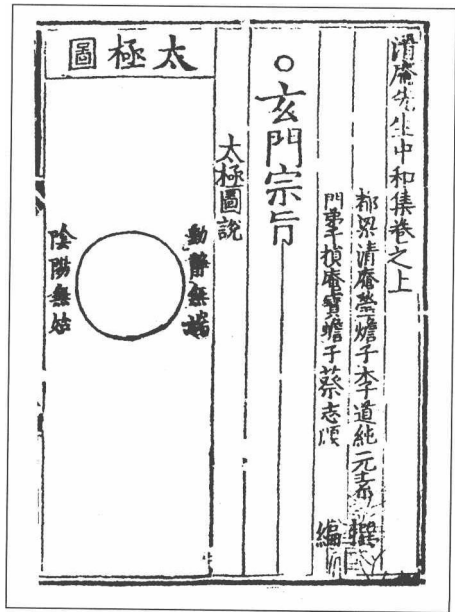 清庵先生中和集卷之上
都梁清庵瑩蟾子李道純元素 撰
門弟子損庵寶蟾子蔡志頤 編
○玄門宗旨
太極圖說
太極圖
動靜無端
陰陽無始